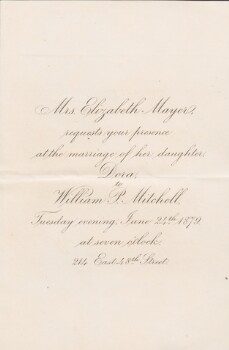 Mrs. Elizabeth Mayer,
requests your presence
at the marriage of her daughter,
Dora,
to
William P. Mitchell,
Tuesday evening, June 24th 1879,
at seven o'clock.
214 East 48th Street.